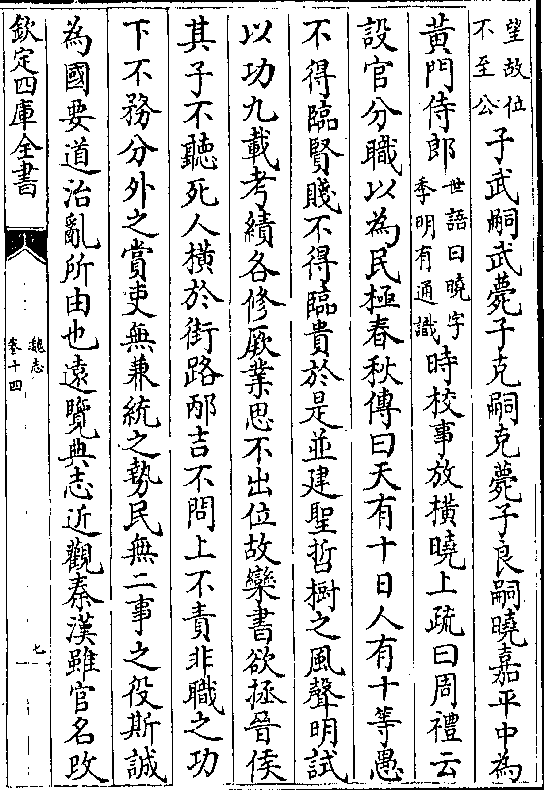 望故位
不至公
子武嗣武薨子克嗣克薨子良嗣曉嘉平中為
黄門侍郎
世語曰曉字
季明有通識
時校事放横曉上疏曰周禮云
設官分職以為民極春秋傳曰天有十日人有十等愚
不得臨賢賤不得臨貴於是並建聖哲樹之風聲明試
以功九載考績各修厥業思不出位故欒書欲拯晉侯
其子不聽死人横於街路邴吉不問上不責非職之功
下不務分外之賞吏無兼統之勢民無二事之役斯誠
為國要道治亂所由也遠覽典志近觀秦漢雖官名改
欽定四庫全書
魏志
卷十四
七